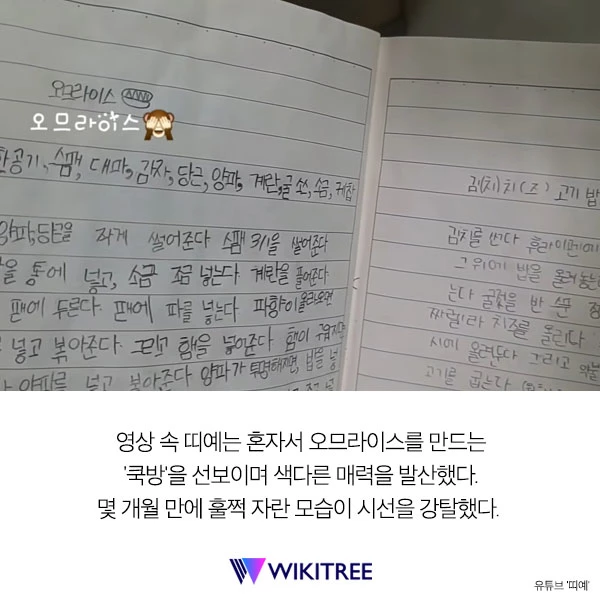 오므라이스
오므라이스
한공기, 스팸, 대파, 감자, 당근, 양파, 계란, 굴소스, 소금, 케찹
양파,당근을 작게 썰어준다 스팸 3/1을 썰어준다
을 통에 넣고, 소금 조금 넣는다. 계란을 풀어준다
팬에 두른다. 팬에 파를 넣는다. 파향이 올라오면
넣고 볶아준다. 그리고 햄을 넣어준다 햄이
양파를 넣고 볶아준다 양파가 투명해지면, 밥을 넣
김(치)치(즈) 고기 밥
김치를 썬다 후라이팬에
그 위에 밥을 올려놓는
는다 굴젓을 반 스푼
치즈를 올린다
시에 올려둔다 그리고
고기를 굽는다
영상 속 띠예는 혼자서 오므라이스를 만드는
'쿡방'을 선보이며 색다른 매력을 발산했다.
몇 개월 만에 훌쩍 자란 모습이 시선을 강탈했다.
WIKITREE
유튜브 '띠예'